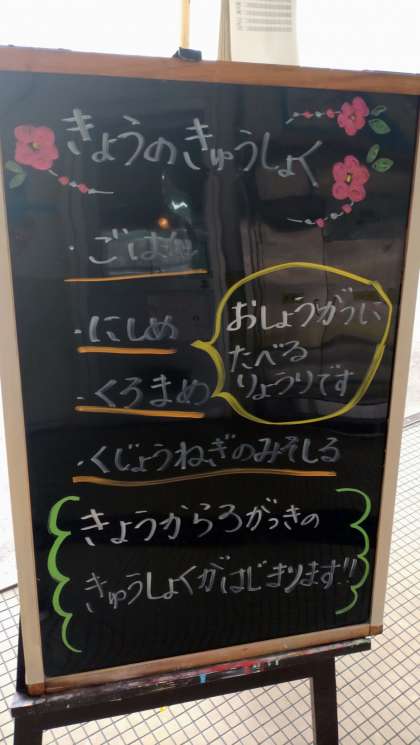 きょうのきゅうしょく
・ごはん
・にしめ
・くろまめ
おしょうがつに
たべる
りょうりです
・くじょうねぎのみそしる
きょうから3がっきの
きゅうしょくがはじまります!!